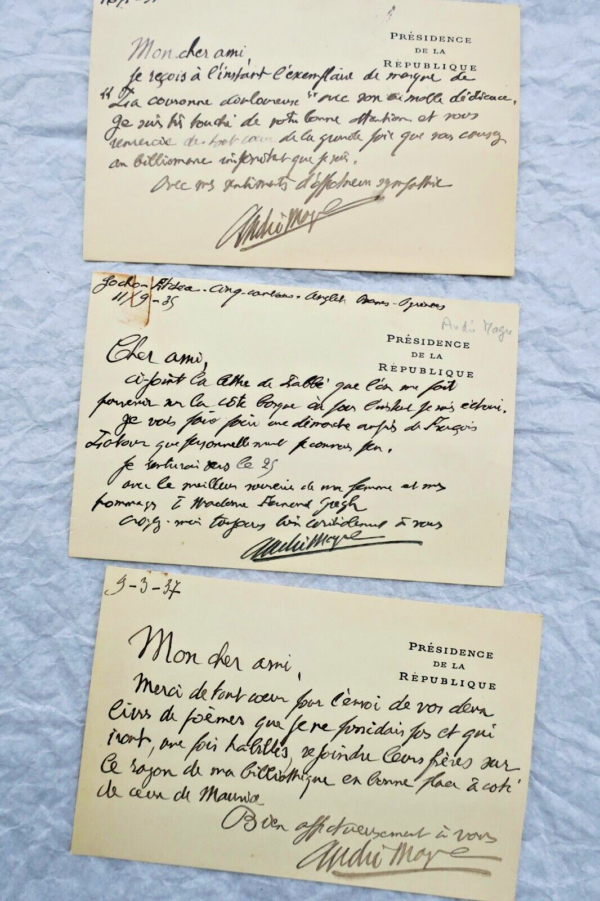 PRÉSIDENCE
DE LA
RÉPUBLIQUE
Mon cher ami,
Je reçois à l'instant l'exemplaire de marque de
"La couronne douloureuse" avec son aimable dédicace.
Je suis très touché de votre bonne attention et vous
remercie de tout coeur de la grande joie que vous causez
au bibliomane impénitent que je suis.
Avec mes sentiments d'affectueuse sympathie
André Magre
11/9-35
André Magre
PRÉSIDENCE
DE LA
RÉPUBLIQUE
Cher ami,
ci joint la lettre de l'abbé que l'on me fait
parvenir sur la côte basque où pour l'instant je suis
Je vais faire faire une démarche auprès de François
que personnellement je connais peu.
Je rentrerai vers le 25
avec le meilleur souvenir de ma femme et mes
hommages à Madame Fernand Gregh
croyez-moi toujours bien cordialement à vous
André Magre
9-3-37
PRÉSIDENCE
DE LA
RÉPUBLIQUE
Mon cher ami,
Merci de tout coeur pour l'envoi de vos deux
livres de poèmes que je ne possédais pas et qui
iront, une fois habillés, rejoindre leurs frères sur
le rayon de ma bibliothèque en bonne place à coté
de ceux de Maurice
Bien affectueusement à vous
André Magre